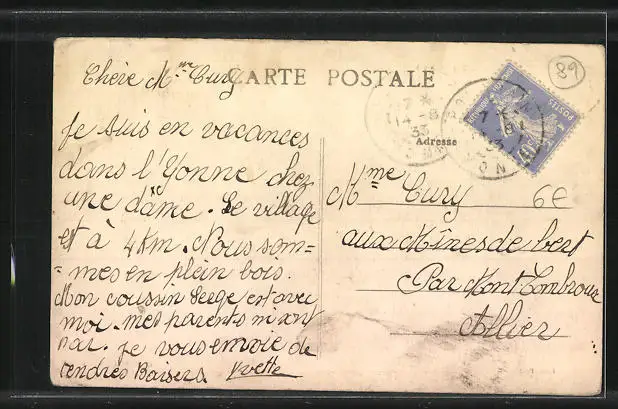 Chère Mme Cury
CARTE POSTALE
Je suis en vacances
dans l'Yonne chez
une dame. Le village
est à 4 km. Nous som=
=mes en plein bois.
Mon coussin Serge est avec
moi. mes parents m'ont
par. Je vous envoie de
tendres Baisers Yvette
89
Adresse
Mme Cury
6E
aux Mînes de bert
Par Mont Combroux
Allier
POSTES